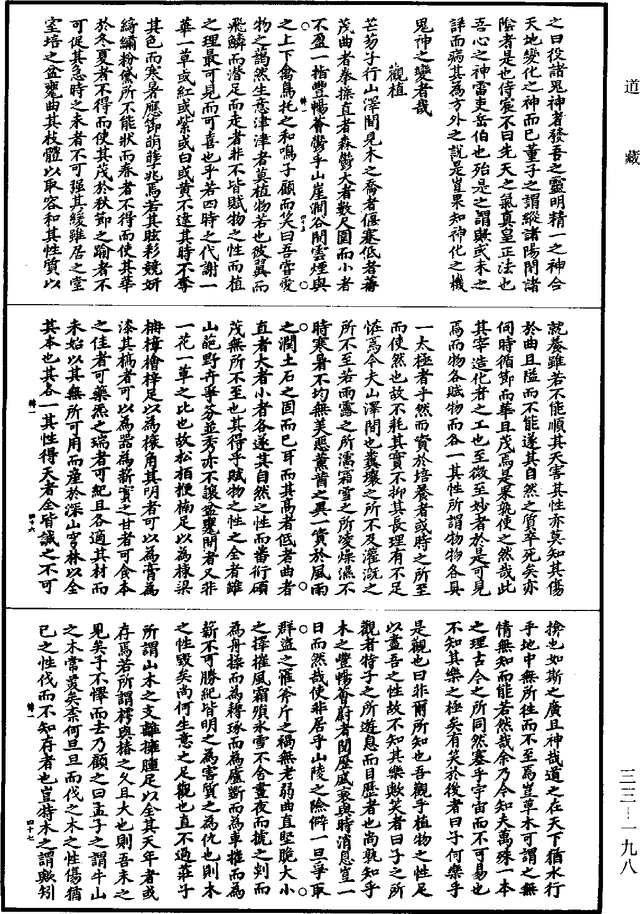 道藏
之曰役諸鬼神者發吾之靈明精一之神合
天地變化之神而已董子之謂縱諸陽閉諸
陰者是也侍宸不曰先天之氣真皇正法也
吾心之神雷吏岳伯也殆是之謂歟或未之
詳而病其為方外之說是豈果知神化之機
鬼神之變者哉
觀植
芒芴子行山澤間見木之喬者偃蹇低者蕃
茂曲者拳操直者森鬱大者數尺圍而小者
不盈一指豐暢薈鬱乎山崖澗谷間雲煙與
四十五
之上下禽鳥托之和鳴子顧而笑曰吾嘗愛
物之藹然生意津津者莫植物若也彼翼而
飛鱗而潛足而走者非不皆賦物之性而植
之理最可見而可喜也乎若四時之代謝一
華一草或紅或紫或白或黃不違其時不奪
其色而寒暑應節萌孽兆焉若其眩彩競妍
綺繡粉黛所不能狀而春者不得而使其華
於冬夏者不得而使其茂於秋節之踰者不
可促其怠時之未者不可強其緩雖居之堂
室培之盆甕曲其枝體以取容和其性質以
就養雖若不能順其天害其性亦莫知其傷
於曲且隘而不能遂其自然之質卒死矣亦
伺時循節而華且茂焉是果孰使之然哉此
其宰造化者之工也至微至妙者於是可見
焉而物各賦物而各一其性所謂物物各具
一太極者乎然而資於培養者或時之所至
而使然也故不耗其實不抑其長理有不足
恠焉今夫山澤間也糞壤之所不及灌溉之
所不至若雨露之所濡霜雪之所凌燥濕不
時寒暑不均無美惡薰蕕之異一資於風雨
之潤土石之固而已耳而其高者低者曲者
直者大者小者各遂其自然之性而畨衍碩
茂無所不至也其得乎賦物之性之全者雖
山葩野卉爭芬並秀亦不讓盆甕間者又非
一花一草之比也故松栢梗楠足以為棟梁
栴檀檜梓足以為榱角其明者可以為膏為
漆其槁者可以為器為薪實之甘者可食本
之佳者可藥烝之瑞者可紀且各適其材而
未始以其無所可用而產於深山窮林以全
其本也其各一其性得天者全皆誠之不可
四十六
揜也如斯之廣且神哉道之在天下猶水行
乎地中無所往而不至焉豈草木可謂之無
情無知而能若然哉余乃今知夫萬殊一本
之理古今之所同然塞乎宇宙而不可易也
不知其樂之極矣有笑於後者曰子何樂乎
是觀也曰非爾所知也吾觀乎植物之性足
以盡吾之性故不知其樂歟笑者曰子之所
觀者特子之所遊息而目歷者也尚孰知乎
木之豐暢薈蔚者閱歷盛衰與時消息豈一
日而然哉使非居乎山陵之險僻一旦爭取
群盜之罹斧斤之禍無老弱曲直堅脆大小
之擇摧風霜殞氷雪不舍晝夜而摭之刳而
為舟揉而為耨琢而為廬斷而為車摧而為
薪不可勝紀皆明之為害質之為仇也則木
之性毀矣尚何生意之足觀也直不過莊子
所謂山木之支離擁腫足以全其天年者或
存焉若所謂樗與椿之久且大也則吾未之
見矣子不懌而去乃顧之曰孟子之謂牛山
之木嘗美矣柰何旦旦而伐之木之性傷猶
己之性伐而不知存者也豈特木之謂歟矧
四十七
三三—一九八